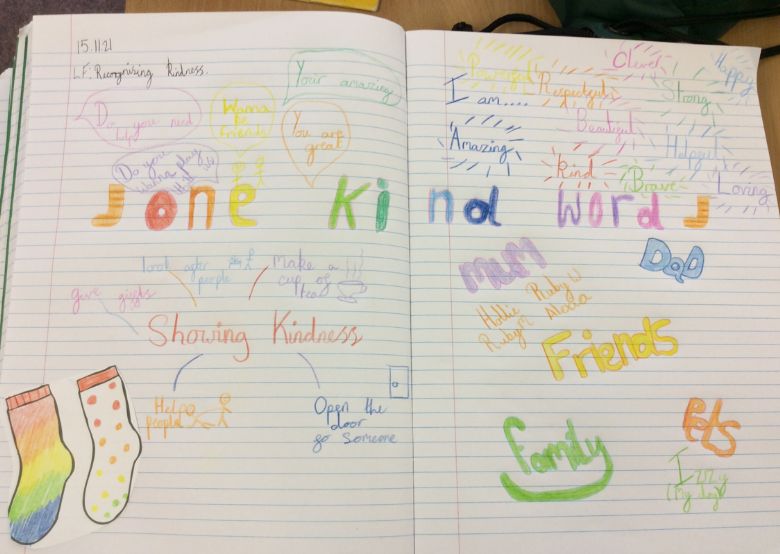 15.11.21
LF: Recognising Kindness.
Your amazing
Do you need
help
Wanna
be
friends
You are
great
Do you
wanna play
Jone Kind word J
look after
people
Make a
cup of
tea
give gifts
Showing Kindness
Help
people
Open the
door
go someone
Clever
Happy
Powerful
Respectful
Strong
I am....
Beautiful
Amazing
Helpful
Kind
Brave
Loving
MUM
DaD
Ruby W
Hollie
Alexia
Ruby M
Friends
Family
Pets
Izzy
(My dog)